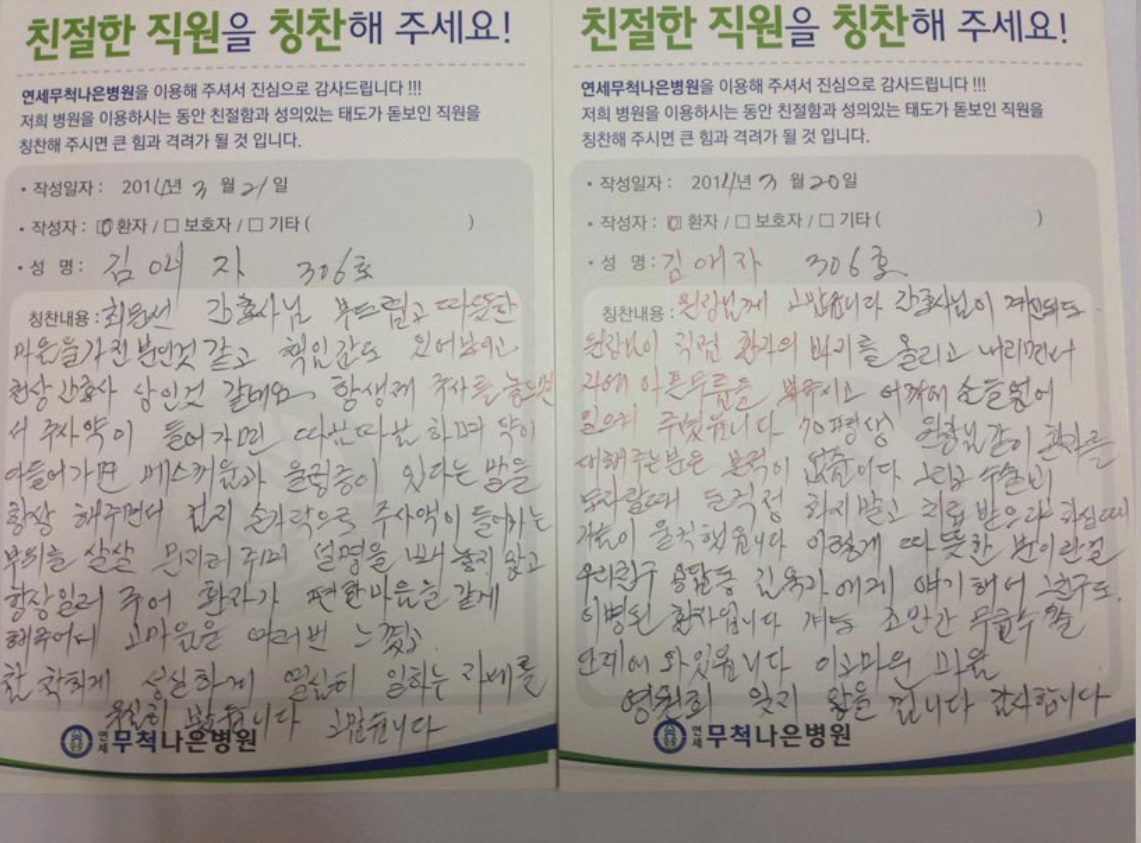 친절한 직원을 칭찬해 주세요!
연세무척나은병원을 이용해 주셔서 진심으로 감사드립니다 !!!
저희 병원을 이용하시는 동안 친절함과 성의있는 태도가 돋보인 직원을
칭찬해 주시면 큰 힘과 격려가 될 것 입니다.
• 작성일자 : 2014년 3 월 21 일
• 작성자 : ☑ 환자 / □ 보호자 / □ 기타 ( )
• 성 명 : 김애자 306호
칭찬내용 : 최문선 간호사님 부드럽고 따뜻한
마음을가진분인것 같고 책임감도 있어보이고
천상간호사 상인것 같네요. 항생제 주사를 놓으면
서 주사약이 들어가면 따끔따끔 하며 약이
다들어가면 메스꺼움과 울렁증이 있다는 말을
항상 해주면서 검지 손가락으로 주사액이 들어가는
부위를 살살 문지러주며 설명을 빼놓지 않고
항상일러 주어 환자가 편한마음을 갖게
해주어서 고마움은 여러번 느꼈고.
참 착하게 성실하게 열심히 임하는 자세를
보았읍니다 고맙읍니다
연세무척나은병원
친절한 직원을 칭찬해 주세요!
연세무척나은병원을 이용해 주셔서 진심으로 감사드립니다 !!!
저희 병원을 이용하시는 동안 친절함과 성의있는 태도가 돋보인 직원을
칭찬해 주시면 큰 힘과 격려가 될 것 입니다.
• 작성일자 : 2014년 3 월 20일
• 작성자 : ☑ 환자 / □ 보호자 / □ 기타 ( )
• 성 명 : 김애자 306호
칭찬내용 : 원장님께 고맙습니다 간호사님이 계신데도
원장님이 직접 환자의 바지를 올리고 내리면서
아픈무릎을 봐주시고 어깨에 손을얹어
일으켜 주셨읍니다 70평생 원장님같이 환자를
대해주는분은 본적이 없읍니다 그리고 수술비
모자랄때 돈걱정 하지말고 치료 받으라 하실때
가슴이 울컥했읍니다 이렇게 따뜻한 분이란걸
우리친구 김옥자에게 얘기해서 그친구도
이병원 환자입니다 걔도 조만간 무릎수술
단계에 와있읍니다 이고마운 마음
영원히 잊지 않을 겁니다 감사합니다
연세무척나은병원